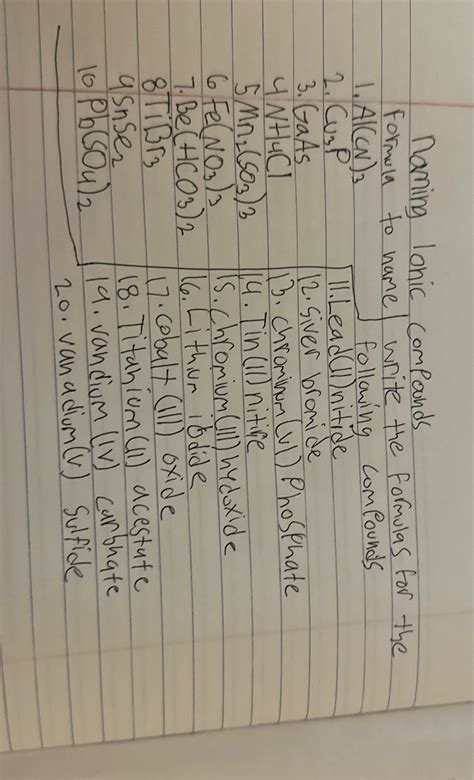 Naming Ionic compounds
formula to name write the formulas for the
following compounds
1. Al(CN)3
2. Cu3P
3. GaAs
4 NH4Cl
5 Mn2(SO3)3
6 Fe(NO3)3
7. Be(HCO3)2
8 TiBr3
9 SnSe2
10 Pb(SO4)2
11. Lead(II) nitide
12. Silver bromide
13. chrominum(VI) Phosphate
14. Tin(II) nitire
15. chromium(III) hydoxide
16. Lithium iodide
17. cobalt (III) oxide
18. Titanium(II) acestate
19. vandium (IV) carbnate
20. vanadium(V) Sulfide